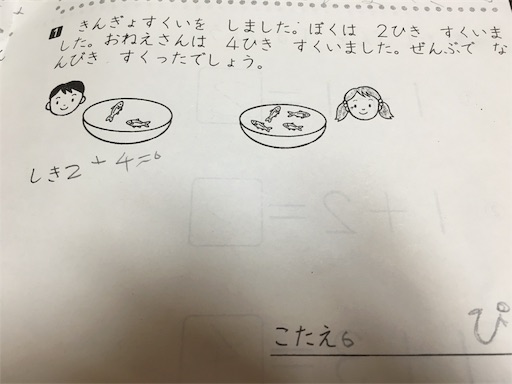 1 きんぎょすくいを しました。ぼくは 2ひき すくいま
した。おねえさんは 4ひき すくいました。ぜんぶで な
んびき すくったでしょう。
しき2+4=6
こたえ6 ぴ